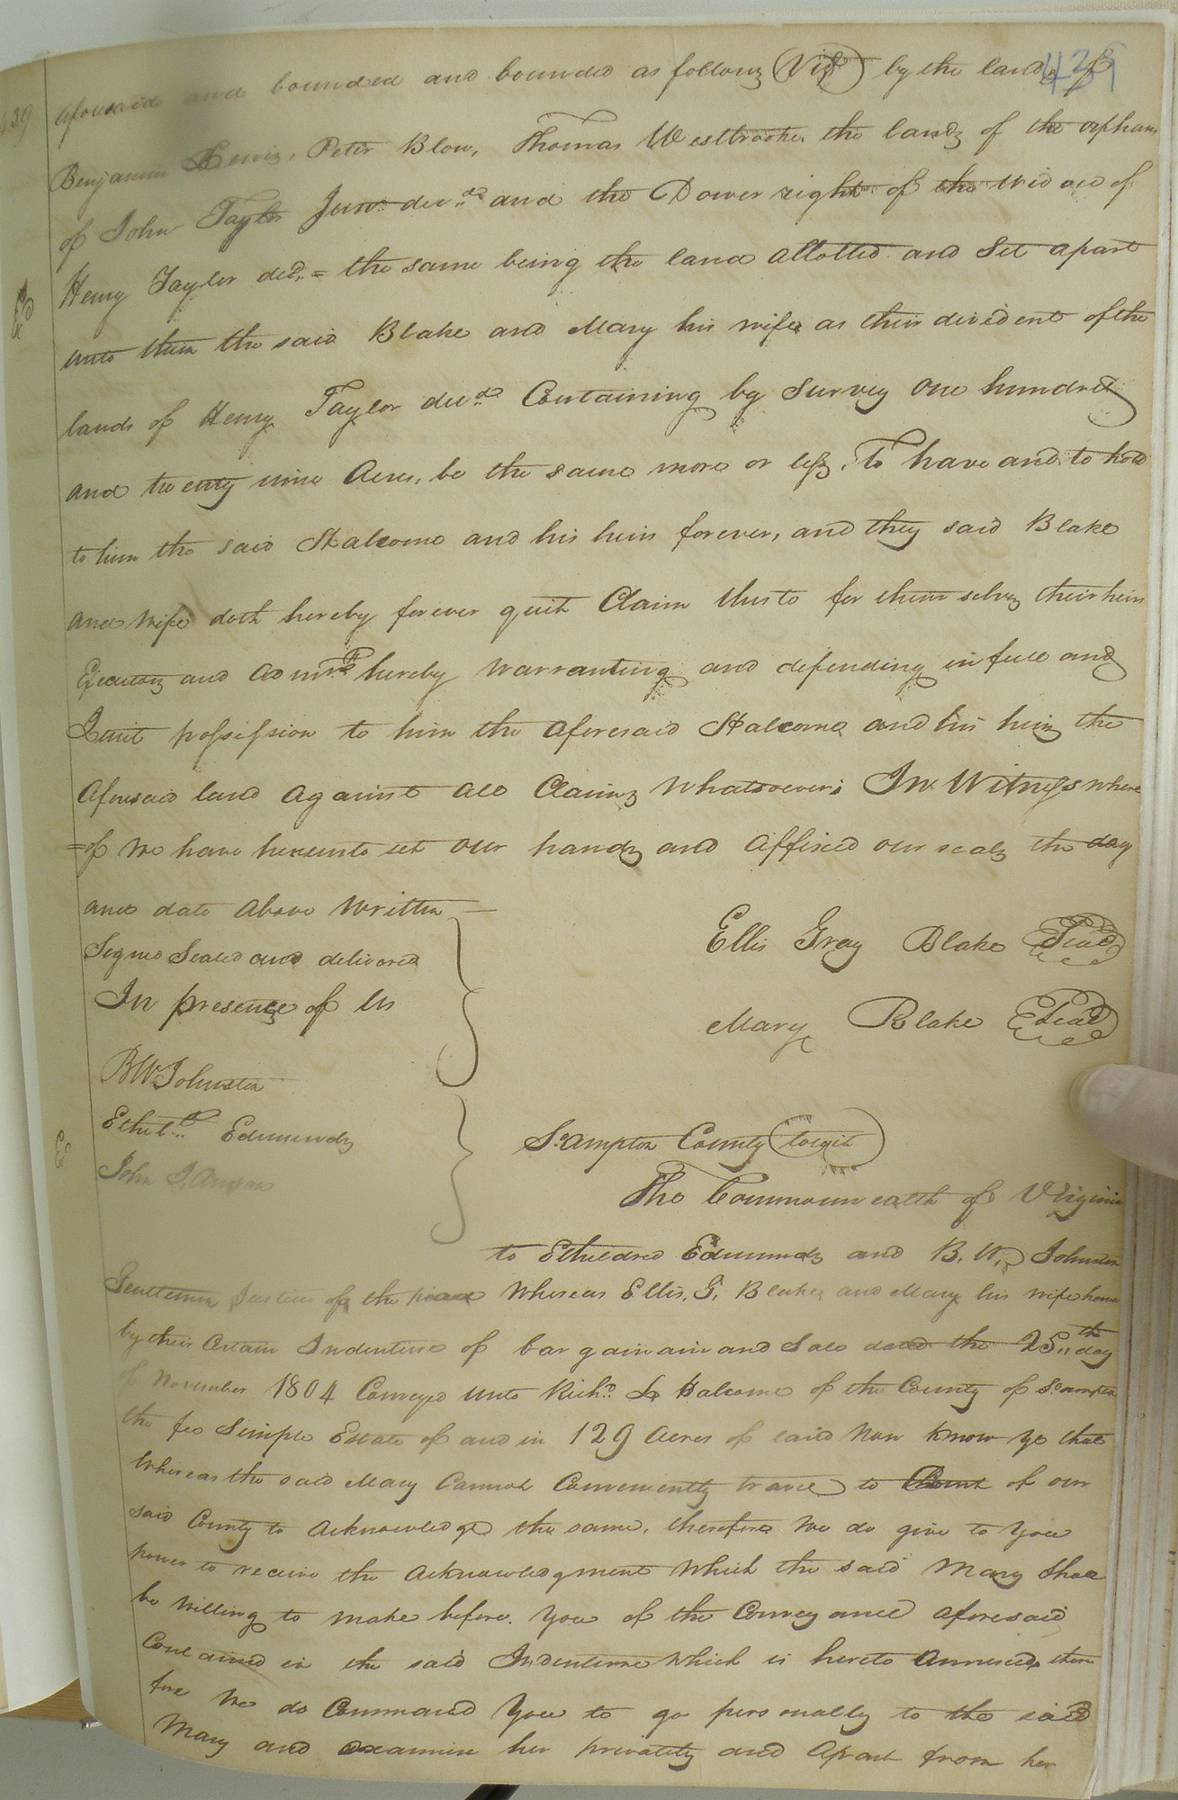 439
aforesaid and bounded and bounded as followz (Viz) by the landz of
Benjamin Lewis, Peter Blow, Thomas Westbrooke the landz of the orphans
of John Taylor Junr. decd. and the Dower right of the Widow of
Henry Taylor decd. = the same being the land allotted and Set apart
unto them the said Blake and Mary his wife as their divident of the
lands of Henry Taylor decd. Containing by Survey one hundred
and twenty nine Acres, be the same more or less, To have and to hold
to him the said Halcome and his heirs forever, and they said Blake
and Wife doth hereby forever quit Claim thisto for themselvez their heirs
Executorz and Admrs. hereby Warranting and defending in full and
quit possession to him the Aforesaid Halcome and his heirz the
Aforesaid land Against all Claimz Whatsoever; In Witness where
=of We have hereunto set our handz and Affixed our sealz the day
and date Above Written
Signed Sealed and delivered
In presence of Us
Ellis Gray Blake Seal
Mary Blake Seal
BW Johnston
Etheld. Edmundz
John
So.ampton County (towit)
The Commonwealth of Virginia
to Etheldred Edmundz and B. W. Johnston
Gentlemen Justices of the peace Whereas Ellis. G. Blake and Mary his wife have
by their Certain Indenture of bargainain and Sale dated the 25th day
of November 1804 Conveyed unto Richd. Halcome of the County of So.ampton
the fee Simple Estate of and in 129 Acres of land Now Know Ye that
Whereas the said Mary Cannot Conveniently travel to Court of our
said County to Acknowledge the same, therefore We do give to You
power to receive the Acknowledgment Which the said Mary Shall
be Willing to make before You of the Conveyance aforesaid
Contained in the said Indenture Which is hereto Annexed, there
fore We do Command You to go personally to the said
Mary and examine her privately and Apart from her